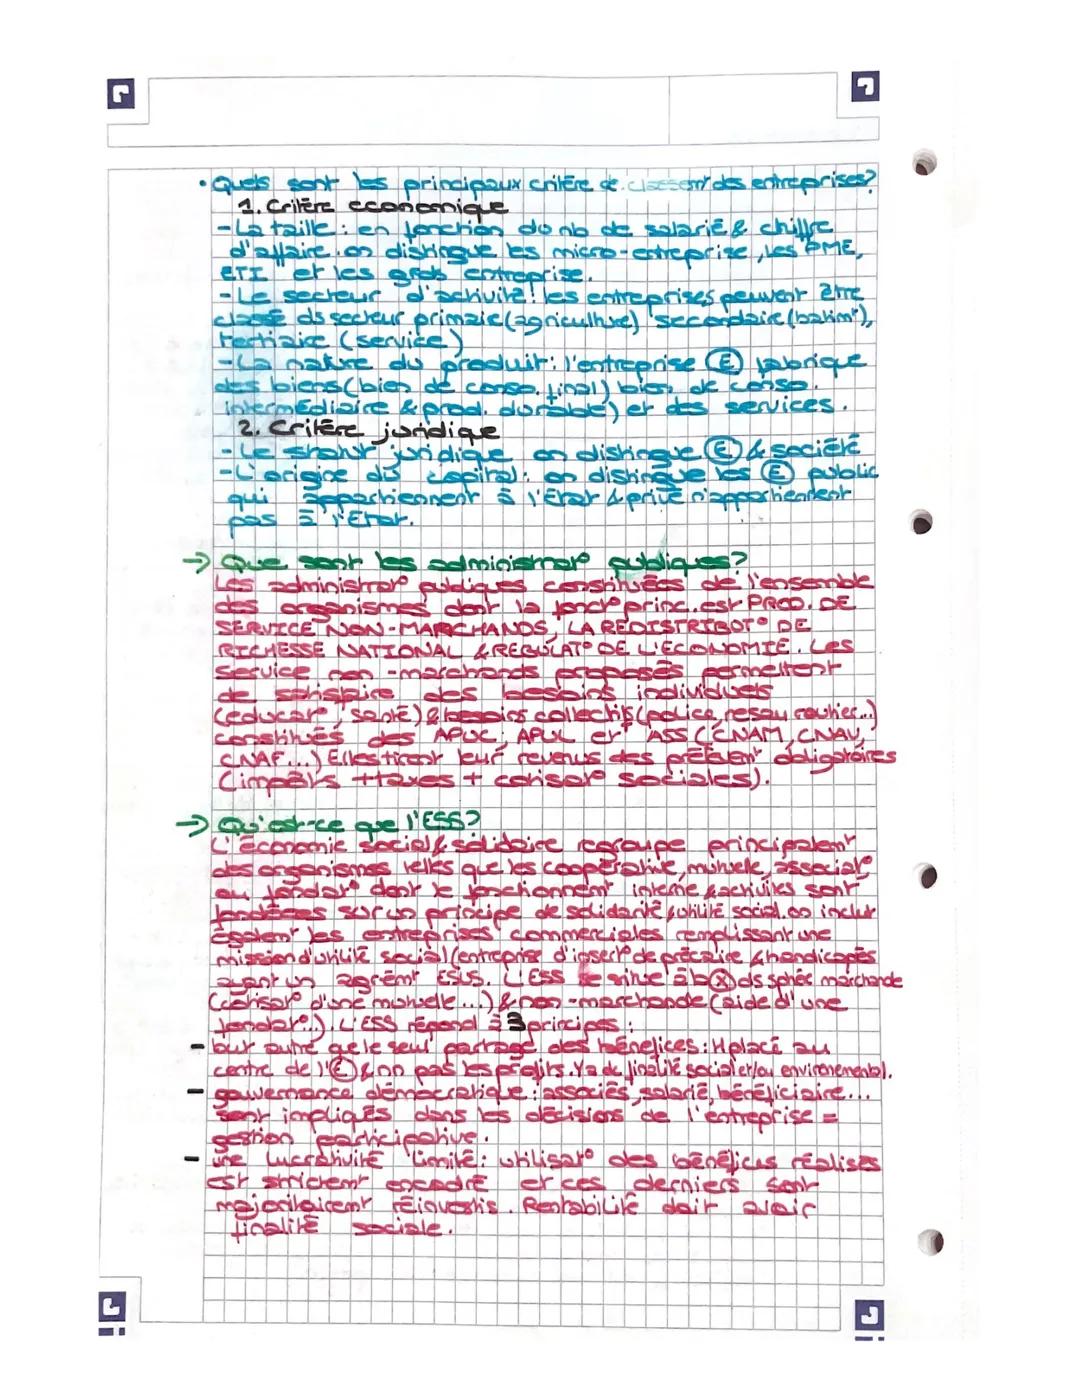 • Quels sont les principaux critère de classemt des entreprises?
1. Critère economique
- La taille : en fonction du nb de salarié & chiffre
d'affaire. on distingue les micro-entreprise, les PME,
ETI et les grds entreprise.
- Le secteur d'activité : les entreprises peuvent être
classé ds secteur primaire (agriculture) secondaire (batimt),
tertiaire (service)
- La nature du produit : l'entreprise Ⓔ fabrique
des biens (bien de conso. final) bien de conso.
intermédiaire & prod. durable) et des services.
2. Critère juridique
- Le statut juridique on distingue Ⓔ & société
- L'origine du capital : on distingue les Ⓔ public
qui appartiennent à l'État & privé n'appartiennent
pas à l'Etat.
→ Que sont les administrat° publiques?
Les administrat° publiques constituées de l'ensemble
des organismes dont la fonct° princ. est PROD. DE
SERVICE NON-MARCHANDS, LA REDISTRIBUT° DE
RICHESSE NATIONAL & REGULAT° DE L'ECONOMIE. Les
service non-marchands proposés permettent
de satisfaire des besoins individuels
(educat°, santé) & besoins collectifs (police, reseau routier...)
constitués des APUC, APUL et ASS (CNAM, CNAV,
CNAF...) Elles tirent leur revenus des prélèvemt obligatoires
(impôts + taxes + cotisat° sociales).
→ Qu'est-ce que l'ESS?
L'économie social & solidaire regroupe principalemt
des organismes telles que les coopérative, mutuelle, associat°
ou fondat° dont le fonctionnemt interne & activités sont
fondées sur un principe de solidarité, utilité social. on inclut
égalemt les entreprises commerciales remplissant une
mission d'utilité social (entreprise d'insert° de précaire & handicapés
ayant un agrémt ESUS. L'ESS se situe à la ⓧ ds sphère marchande
(cotisat° d'une mutuelle...) & non-marchande (aide d'une
fondat°...). L'ESS répond à 3 principes :
- but autre que le seul partage des bénéfices : H placé au
centre de l'Ⓔ & nn pas les profits. Ya de finalité social et/ou environemental.
- gouvernance démocratique : associés, salarié, bénéficiaire...
sont impliqués dans les décisions de l'entreprise =
gestion participative.
- une lucrativité limité : utilisat° des bénéfices réalisés
est strictemt encadré et ces derniers sont
majoritairemt réinvestis. Rentabilité doit avoir
finalité sociale.